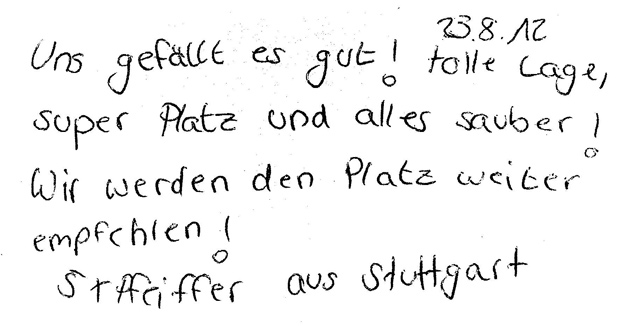 23.8.12
Uns gefällt es gut! tolle Lage,
super Platz und alles sauber!
Wir werden den Platz weiter
empfehlen!
aus Stuttgart